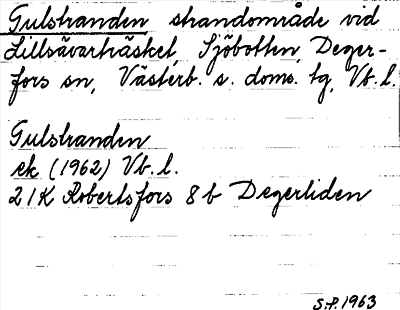 Gulstranden strandområde vid
Lillsävarträsket, Sjöbotten, Deger-
fors sn, Västerb. s. doms. tg, Vb. l.
Gulstranden
ek (1962) Vb. l.
21K Robertsfors 8 b Degerliden
S.P. 1963